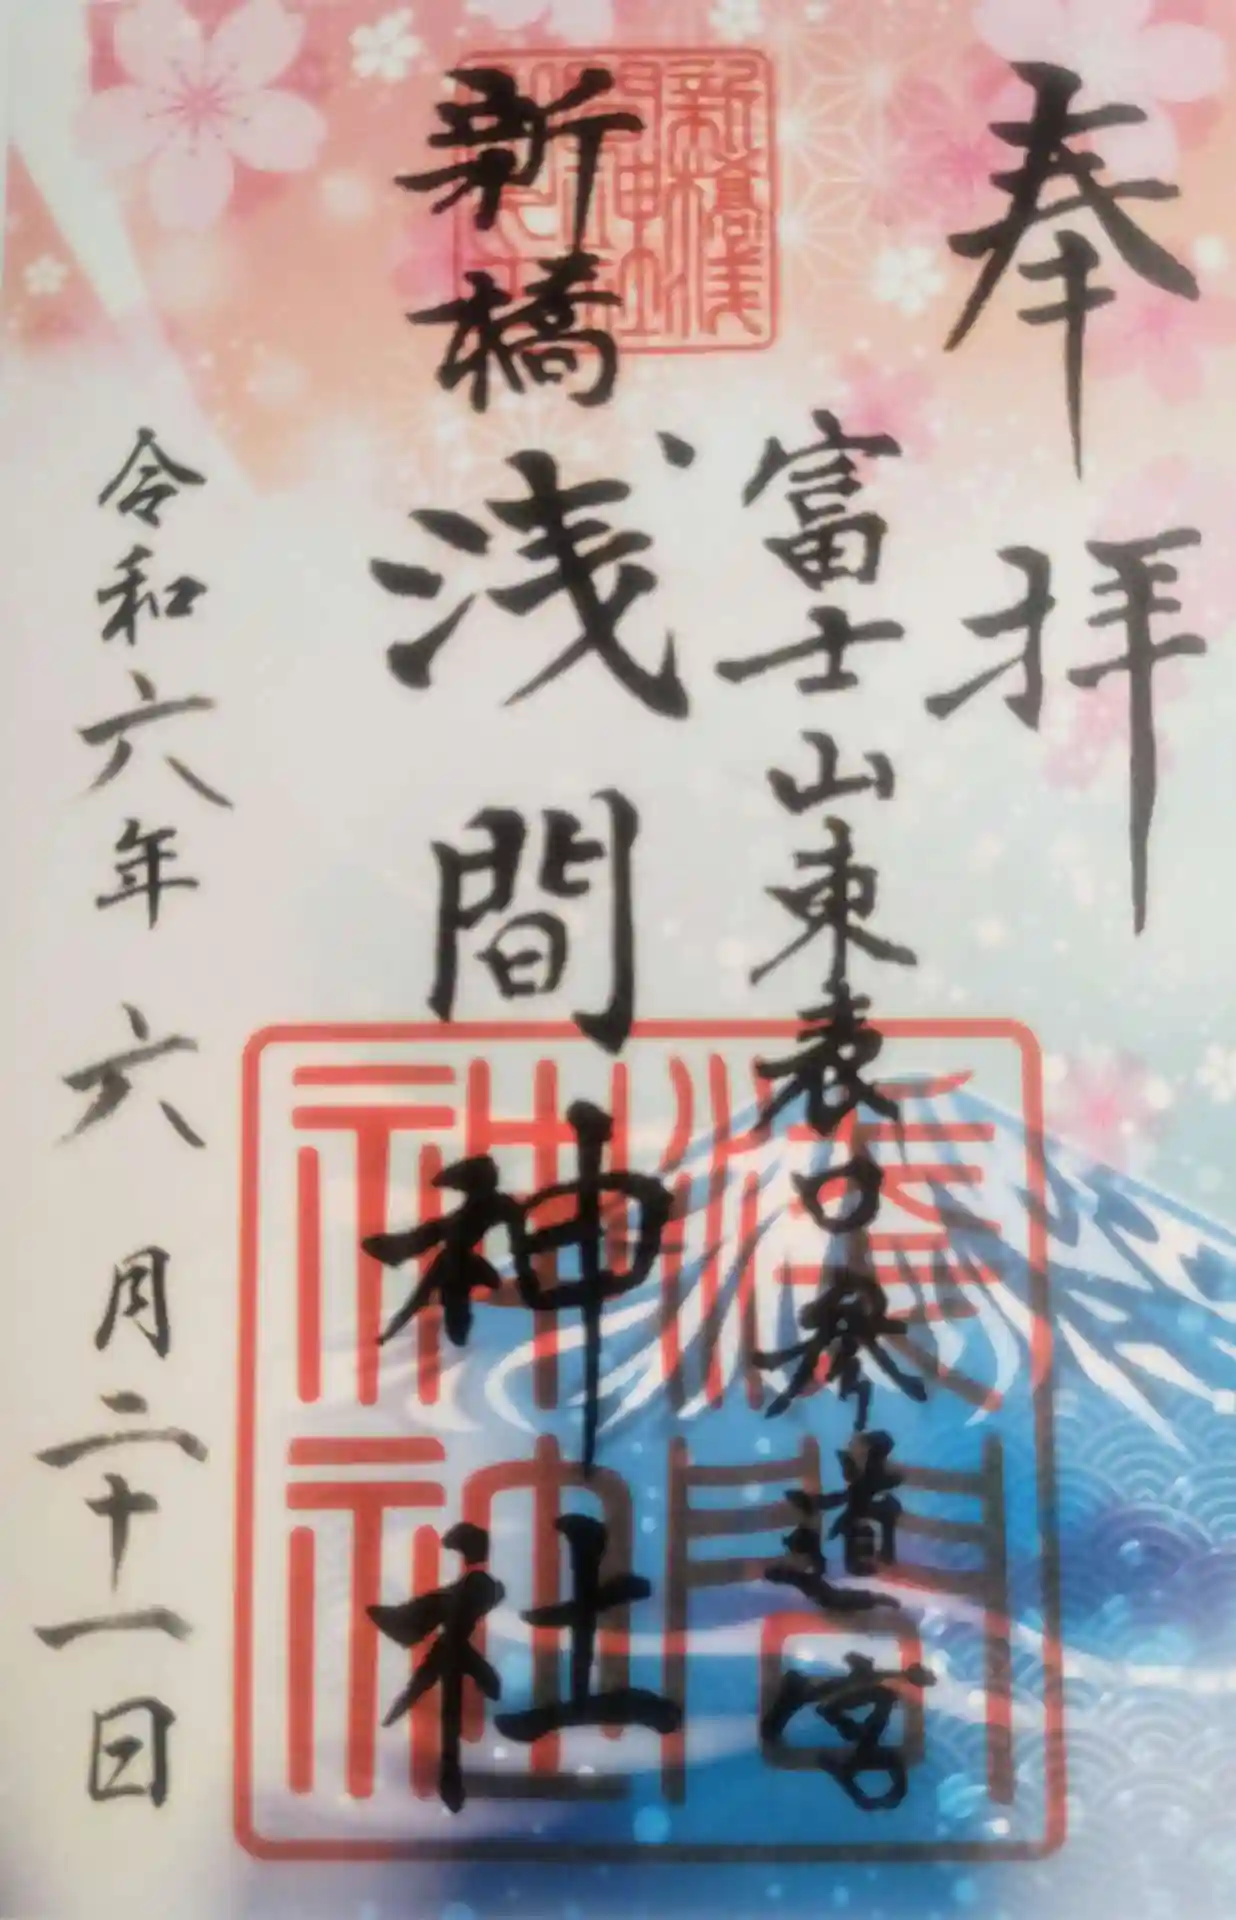 奉拝
富士山東表口参道宮
新橋浅間神社
令和六年六月二十一日
浅間神社